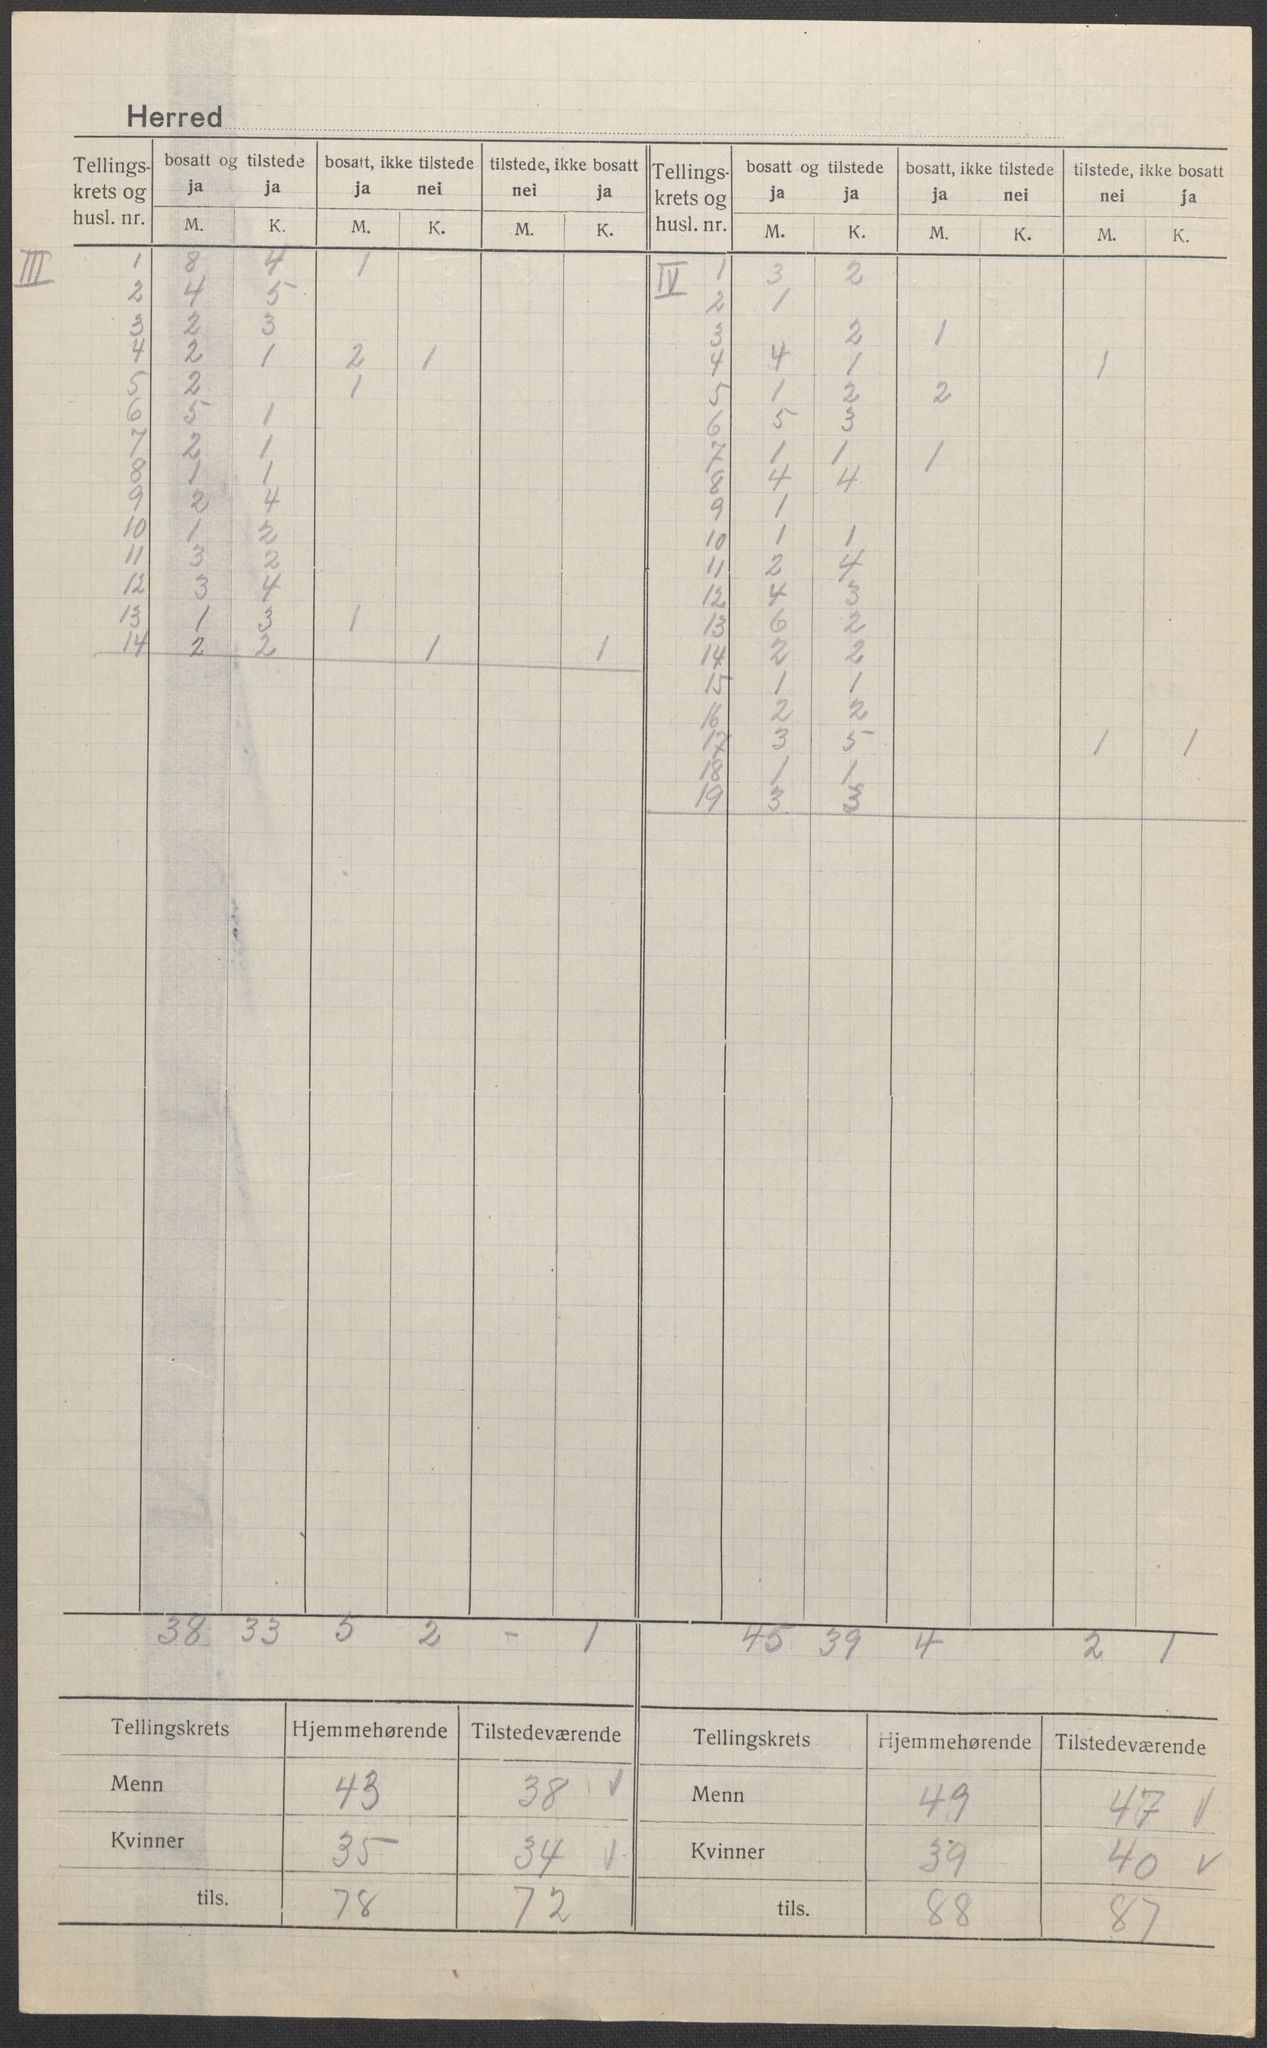 Herred
Tellings- krets og husl. nr. | bosatt og tilstede ja ja | bosatt, ikke tilstede ja nei | tilstede, ikke bosatt nei ja | Tellings- krets og husl. nr. | bosatt og tilstede ja ja | bosatt, ikke tilstede ja nei | tilstede, ikke bosatt nei ja
M. K. M. K. M. K. M. K. M. K. M. K.
III 1 8 4 1
2 4 5
3 2 3
4 2 1 2 1
5 2 1
6 5 1
7 2 1
8 1 1
9 2 4
10 1 2
11 3 2
12 3 4
13 1 3 1
14 2 2 1 1
38 33 5 2 - 1
IV 1 3 2
2 1
3 2 1
4 4 1 1
5 1 2 2
6 5 3
7 1 1 1
8 4 4
9 1
10 1 1
11 2 4
12 4 3
13 6 2
14 2 2
15 1 1
16 2 2
17 3 5 1 1
18 1 1
19 3 3
45 39 4 2 1
Tellingskrets Hjemmehørende Tilstedeværende
Menn 43 38 v
Kvinner 35 34 v
tils. 78 72
Tellingskrets Hjemmehørende Tilstedeværende
Menn 49 47 v
Kvinner 39 40 v
tils. 88 87